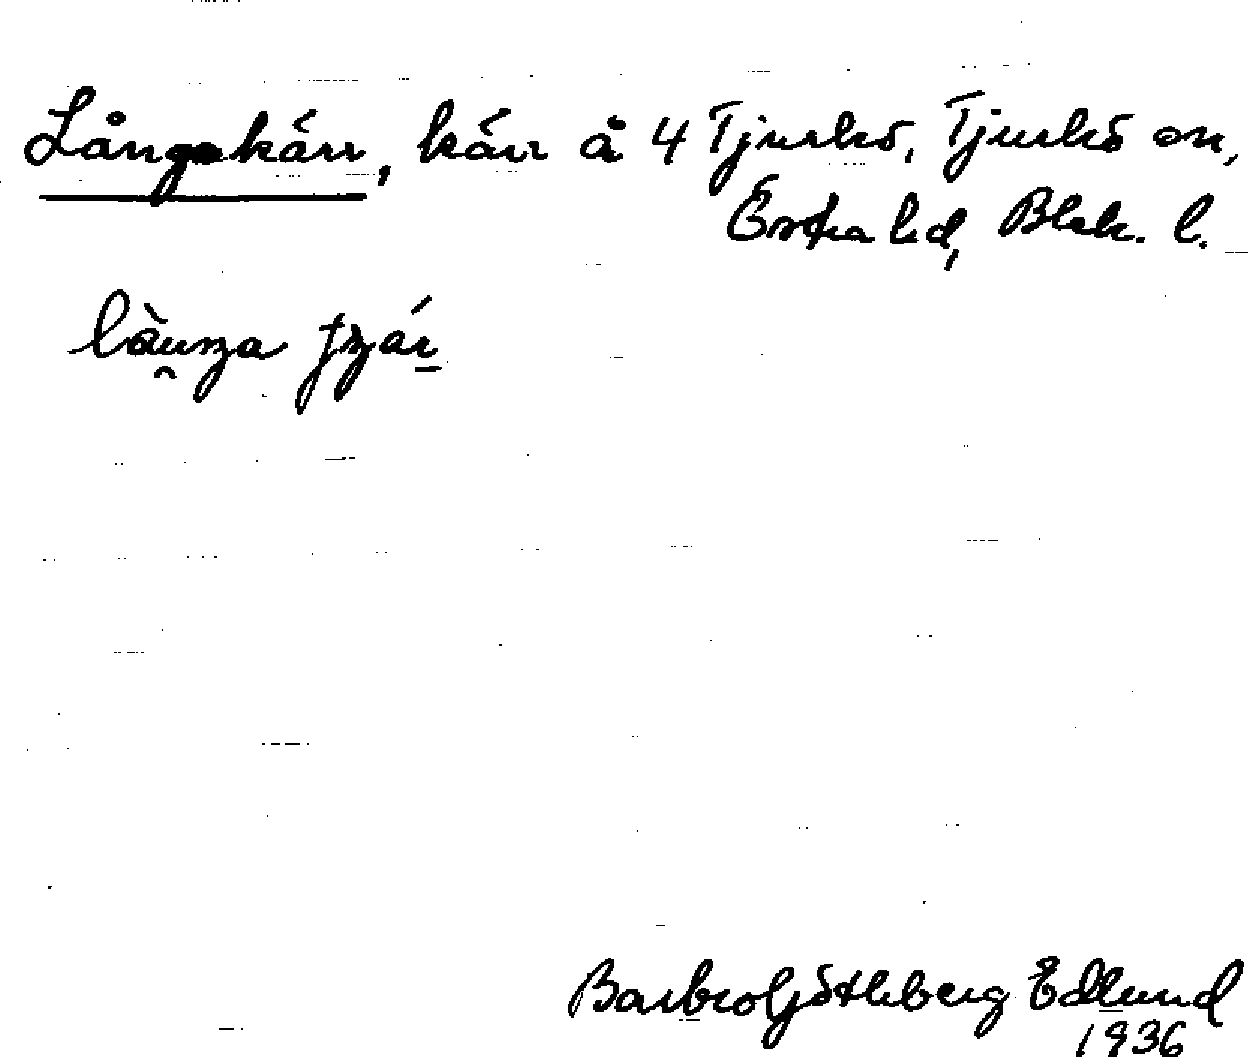 Långakärr, kärr å 4 Tjurkö, Tjurkö sn,
Östra hd, Blek. l.
Barbro Götheberg Edlund
1936